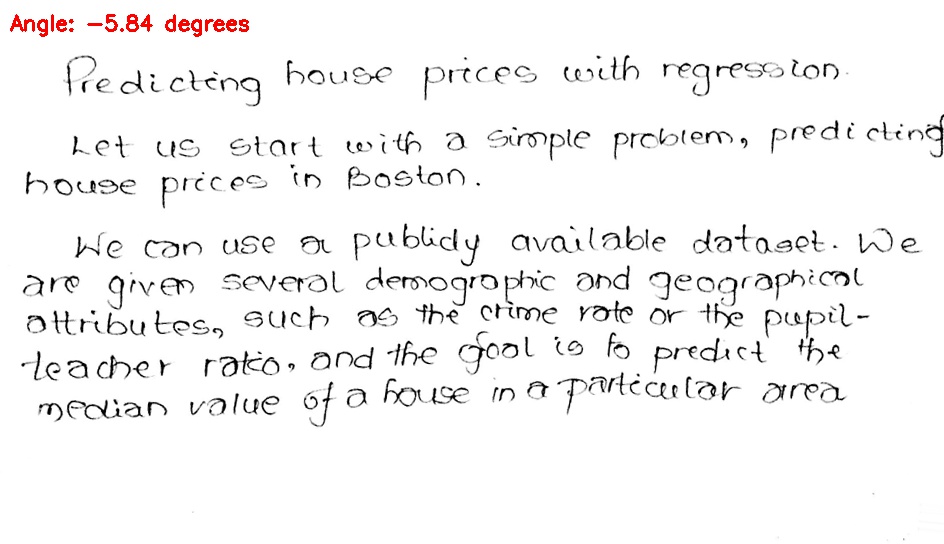 Angle: −5.84 degrees
Predicting house prices with regression.
Let us start with a simple problem, predicting
house prices in Boston.
We can use a publicly available dataset. We
are given several demographic and geographical
attributes, such as the crime rate or the pupil-
teacher ratio, and the goal is to predict the
median value of a house in a particular area